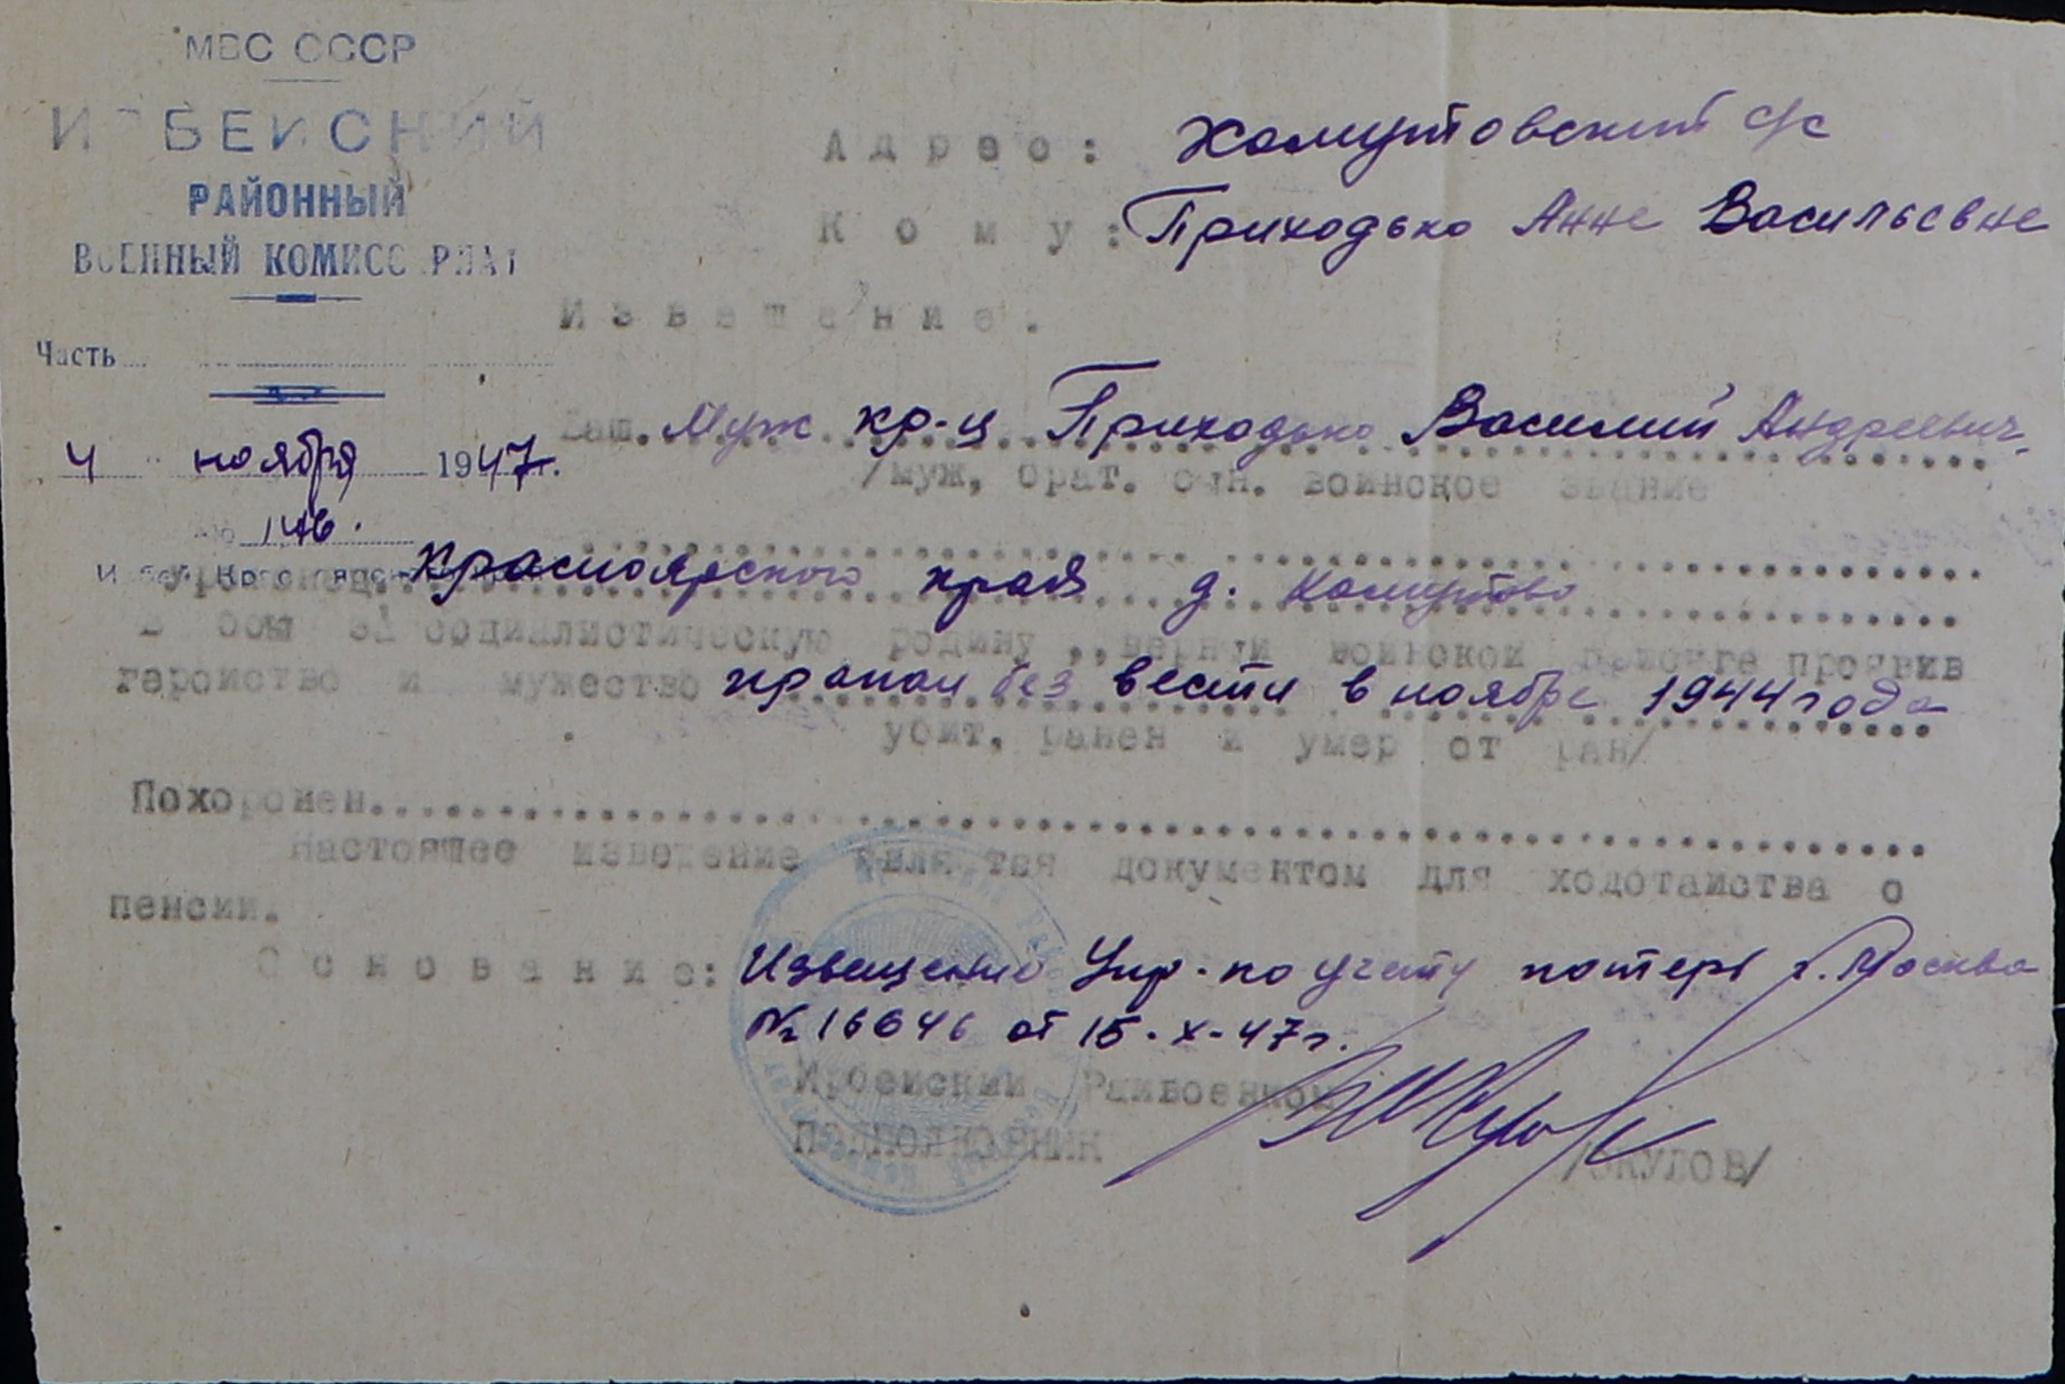 МВС СССР
ИРБЕЙСКИЙ
РАЙОННЫЙ
ВОЕННЫЙ КОМИССАРИАТ
Часть
4 ноября 1947г.
№ 146.
Адрес: Хомутовский с/с
Кому: Приходько Анне Васильевне
Извещение.
Ваш. Муж кр-ц Приходько Василий Андреевич
/муж, брат. сын. воинское звание
уроженец Красноярского края д. Хомутово
В бою за социалистическую родину, верный воинской присяге проявив
геройство и мужество пропал без вести в ноябре 1944 года
убит, ранен и умер от ран/
Похоронен
Настоящее изведение является документом для ходотайства о
пенсии.
Основание: Извещение Упр. по учету потерь г. Москва
№ 16646 от 15-X-47г.
Ирбейский Райвоенком
Подполковник /ОКУЛОВ/